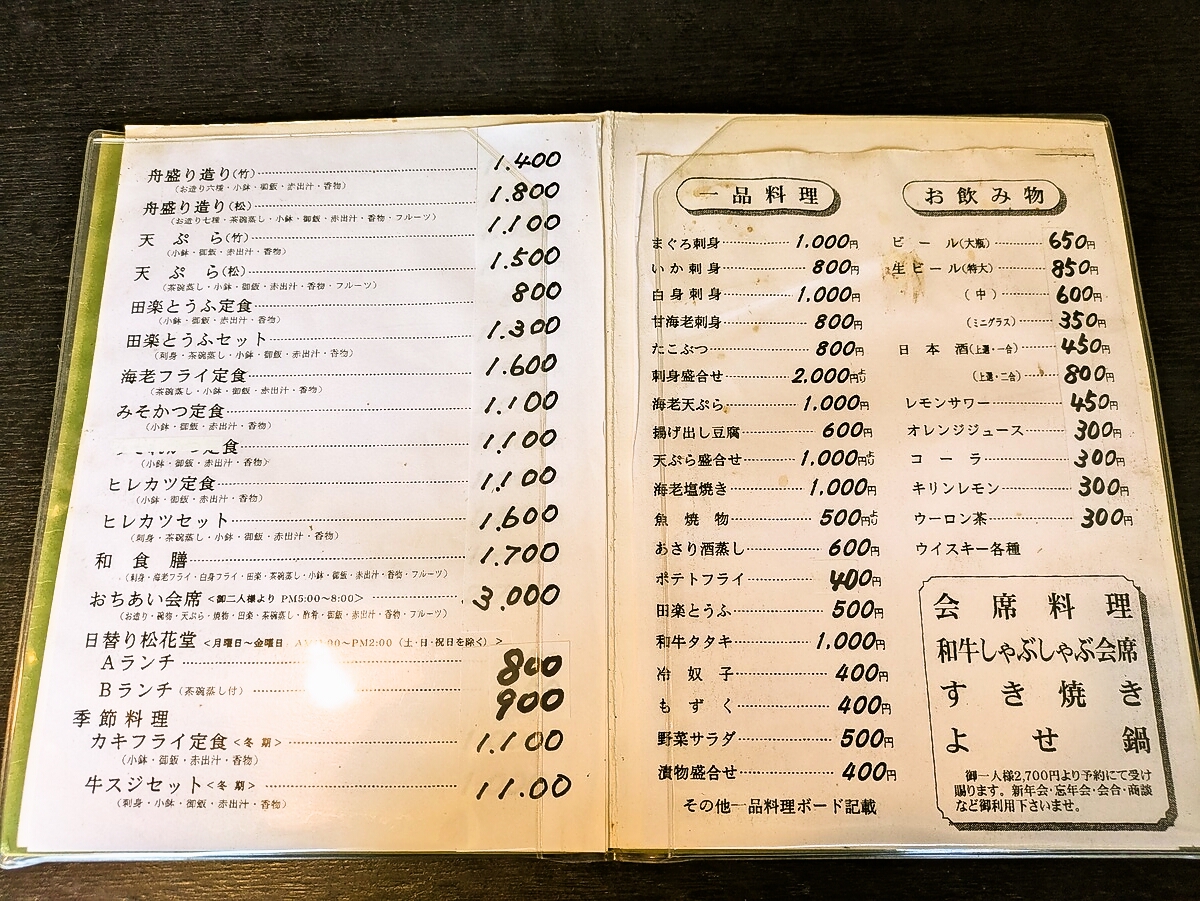 舟盛り造り(竹) 1.400
(お造り六種・小鉢・御飯・赤出汁・香物)
舟盛り造り(松) 1.800
(お造り七種・茶碗蒸し・小鉢・御飯・赤出汁・香物・フルーツ)
天ぷら(竹) 1.100
(小鉢・御飯・赤出汁・香物)
天ぷら(松) 1.500
(茶碗蒸し・小鉢・御飯・赤出汁・香物・フルーツ)
田楽とうふ定食 800
(小鉢・御飯・赤出汁・香物)
田楽とうふセット 1.300
(刺身・茶碗蒸し・小鉢・御飯・赤出汁・香物)
海老フライ定食 1.600
(茶碗蒸し・小鉢・御飯・赤出汁・香物)
みそかつ定食 1.100
(小鉢・御飯・赤出汁・香物)
定食 1.100
(小鉢・御飯・赤出汁・香物)
ヒレカツ定食 1.100
(小鉢・御飯・赤出汁・香物)
ヒレカツセット 1.600
(刺身・茶碗蒸し・小鉢・御飯・赤出汁・香物)
和食膳 1.700
(刺身・海老フライ・白身フライ・田楽・茶碗蒸し・小鉢・御飯・赤出汁・香物・フルーツ)
おちあい会席 <御二人様より PM5:00〜8:00> 3.000
(お造り・碗物・天ぷら・焼物・田楽・茶碗蒸し・酢肴・御飯・赤出汁・香物・フルーツ)
日替り松花堂 <月曜日〜金曜日 〜PM2:00(土・日・祝日を除く)>
Aランチ 800
Bランチ(茶碗蒸し付) 900
季節料理
カキフライ定食<冬期> 1.100
(小鉢・御飯・赤出汁・香物)
牛スジセット<冬期> 11.00
(刺身・小鉢・御飯・赤出汁・香物)
一品料理
まぐろ刺身 1.000円
いか刺身 800円
白身刺身 1.000円
甘海老刺身 800円
たこぶつ 800円
刺身盛合せ 2.000円より
海老天ぷら 1.000円
揚げ出し豆腐 600円
天ぷら盛合せ 1.000円より
海老塩焼き 1.000円
魚焼物 500円より
あさり酒蒸し 600円
ポテトフライ 400円
田楽とうふ 500円
和牛タタキ 1.000円
冷奴子 400円
もずく 400円
野菜サラダ 500円
漬物盛合せ 400円
その他一品料理ボード記載
お飲み物
ビール(大瓶) 650円
生ビール(特大) 850円
(中) 600円
(ミニグラス) 350円
日本酒(上選・一合) 450円
(上選・二合) 800円
レモンサワー 450円
オレンジジュース 300円
コーラ 300円
キリンレモン 300円
ウーロン茶 300円
ウイスキー各種
会席料理
和牛しゃぶしゃぶ会席
すき焼き
よせ鍋
御一人様2,700円より予約にて受け
賜ります。新年会・忘年会・会合・商談
など御利用下さいませ。